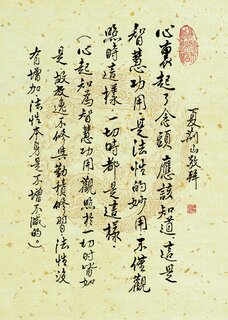 心裏起了念頭應該知道這是
智慧功用是法性的妙用不僅觀
照時這樣一切時都是這樣
(心起知為智慧功用觀照於一切時皆如
是故放逸不修與勤積修習法性沒
有增加法性本身是不增不減的。)
夏荊山敬拜